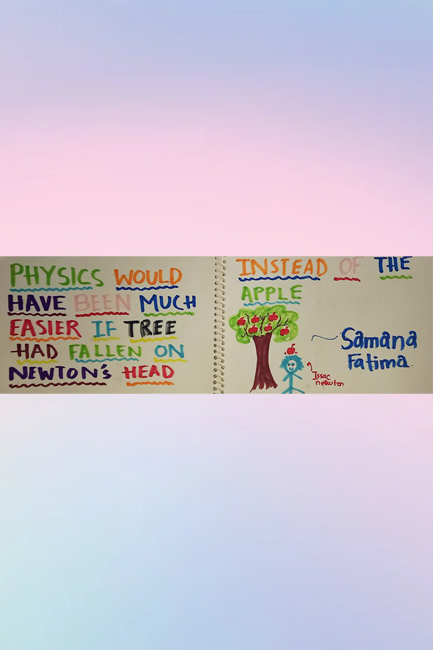 PHYSICS WOULD
HAVE BEEN MUCH
EASIER IF TREE
HAD FALLEN ON
NEWTON'S HEAD
INSTEAD OF THE
APPLE
~ Samana
Fatima
Issac
newton